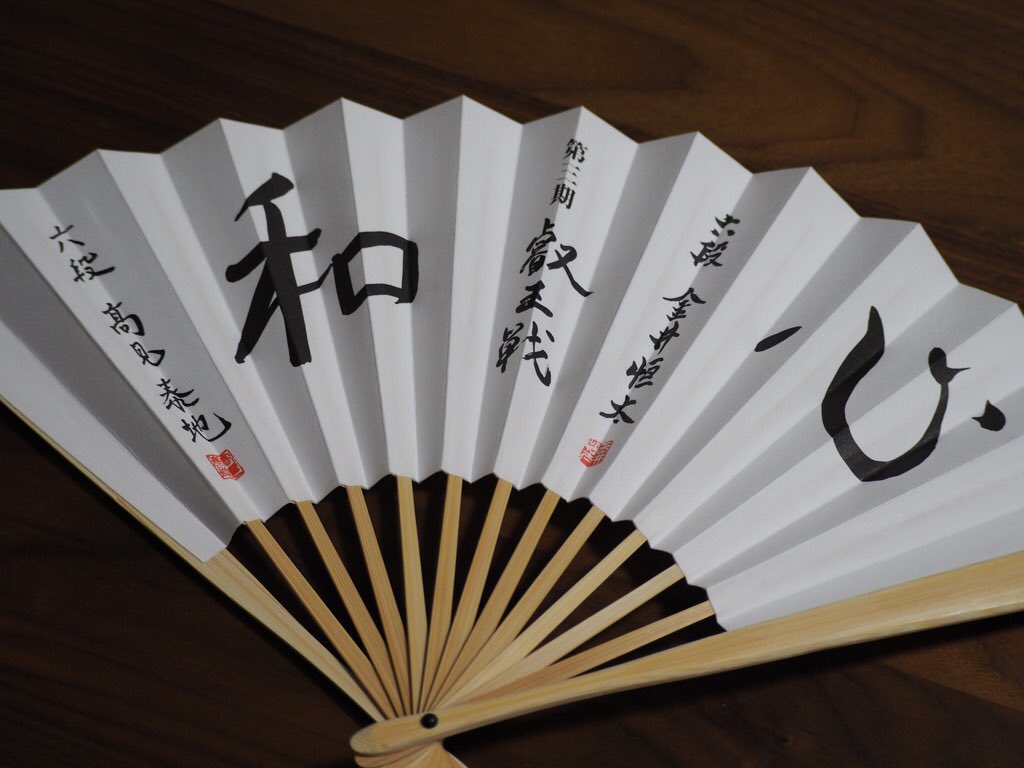 心
六段 金井恒太
第三期 叡王戦
和
六段 高見泰地